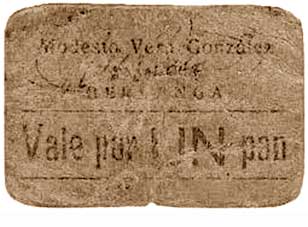 Modesto Vera González
BERLANGA
Vale por UN pan